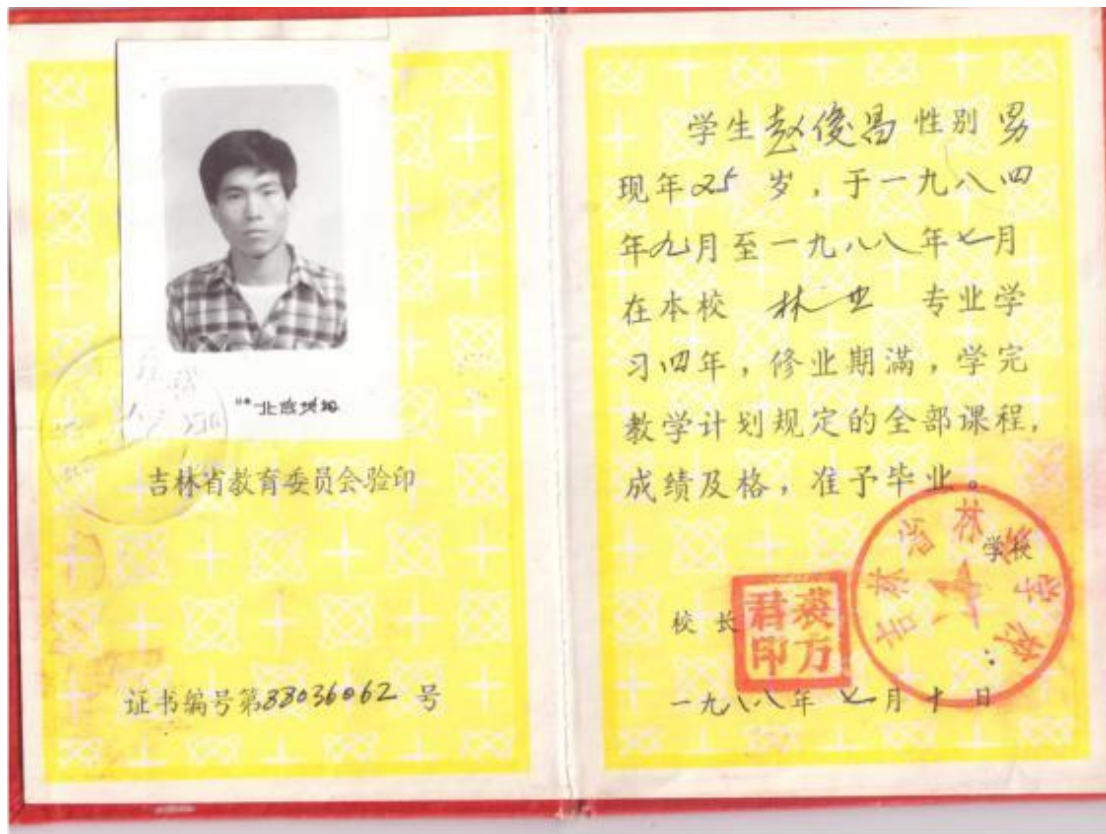 吉林省教育委员会验印
证书编号第88036062号
学生赵俊昌性别男
现年25岁，于一九八四
年九月至一九八八年七月
在本校 林业 专业学
习四年，修业期满，学完
教学计划规定的全部课程，
成绩及格，准予毕业。
吉林省林业学校
学校
校长
裘方
君印
一九八八年七月十日